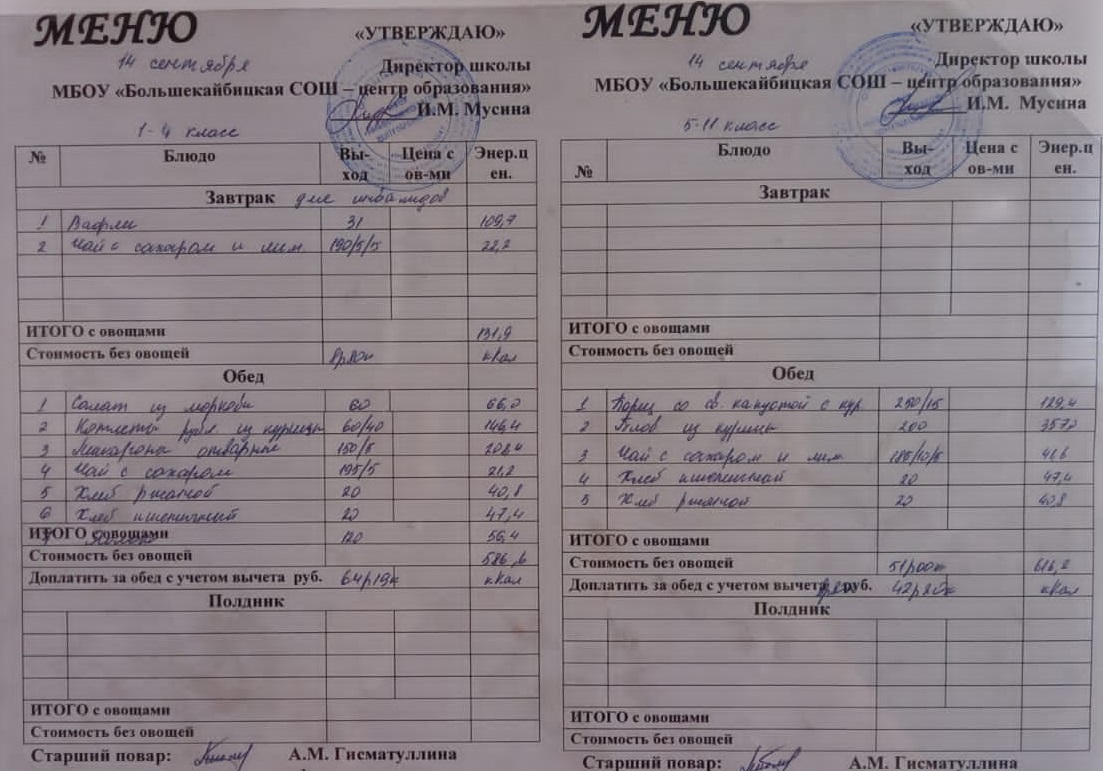 МЕНЮ
«УТВЕРЖДАЮ»
14 сентября
Директор школы
МБОУ «Большекайбицкая СОШ – центр образования»
И.М. Мусина
1-4 класс
№ Блюдо Вы-ход Цена с ов-ми Энер.цен.
Завтрак для инвалидов
1 Вафли 31 109,7
2 Чай с сахаром и лим. 190/5/5 22,2
ИТОГО с овощами 131,9
Стоимость без овощей ккал
Обед
1 Салат из моркови 60 66,0
2 Котлеты рубл. из курицы 60/40 146,4
3 Макароны отварные 150/5 208,4
4 Чай с сахаром 195/5 21,2
5 Хлеб ржаной 20 40,8
6 Хлеб пшеничный 20 47,4
ИТОГО с овощами
7 Яблоко 120 56,4
Стоимость без овощей 586,6
Доплатить за обед с учетом вычета руб. 64р19к ккал
Полдник
ИТОГО с овощами
Стоимость без овощей
Старший повар: А.М. Гисматуллина
МЕНЮ
«УТВЕРЖДАЮ»
14 сентября
Директор школы
МБОУ «Большекайбицкая СОШ – центр образования»
И.М. Мусина
5-11 класс
№ Блюдо Вы-ход Цена с ов-ми Энер.цен.
Завтрак
ИТОГО с овощами
Стоимость без овощей
Обед
1 Борщ со св. капустой с кур. 250/15 129,4
2 Плов из курицы 200 357,0
3 Чай с сахаром и лим 185/10/5 41,6
4 Хлеб пшеничный 20 47,4
5 Хлеб ржаной 20 40,8
ИТОГО с овощами
Стоимость без овощей 51р00к 616,2
Доплатить за обед с учетом вычета руб. 42р20к ккал
Полдник
ИТОГО с овощами
Стоимость без овощей
Старший повар: А.М. Гисматуллина